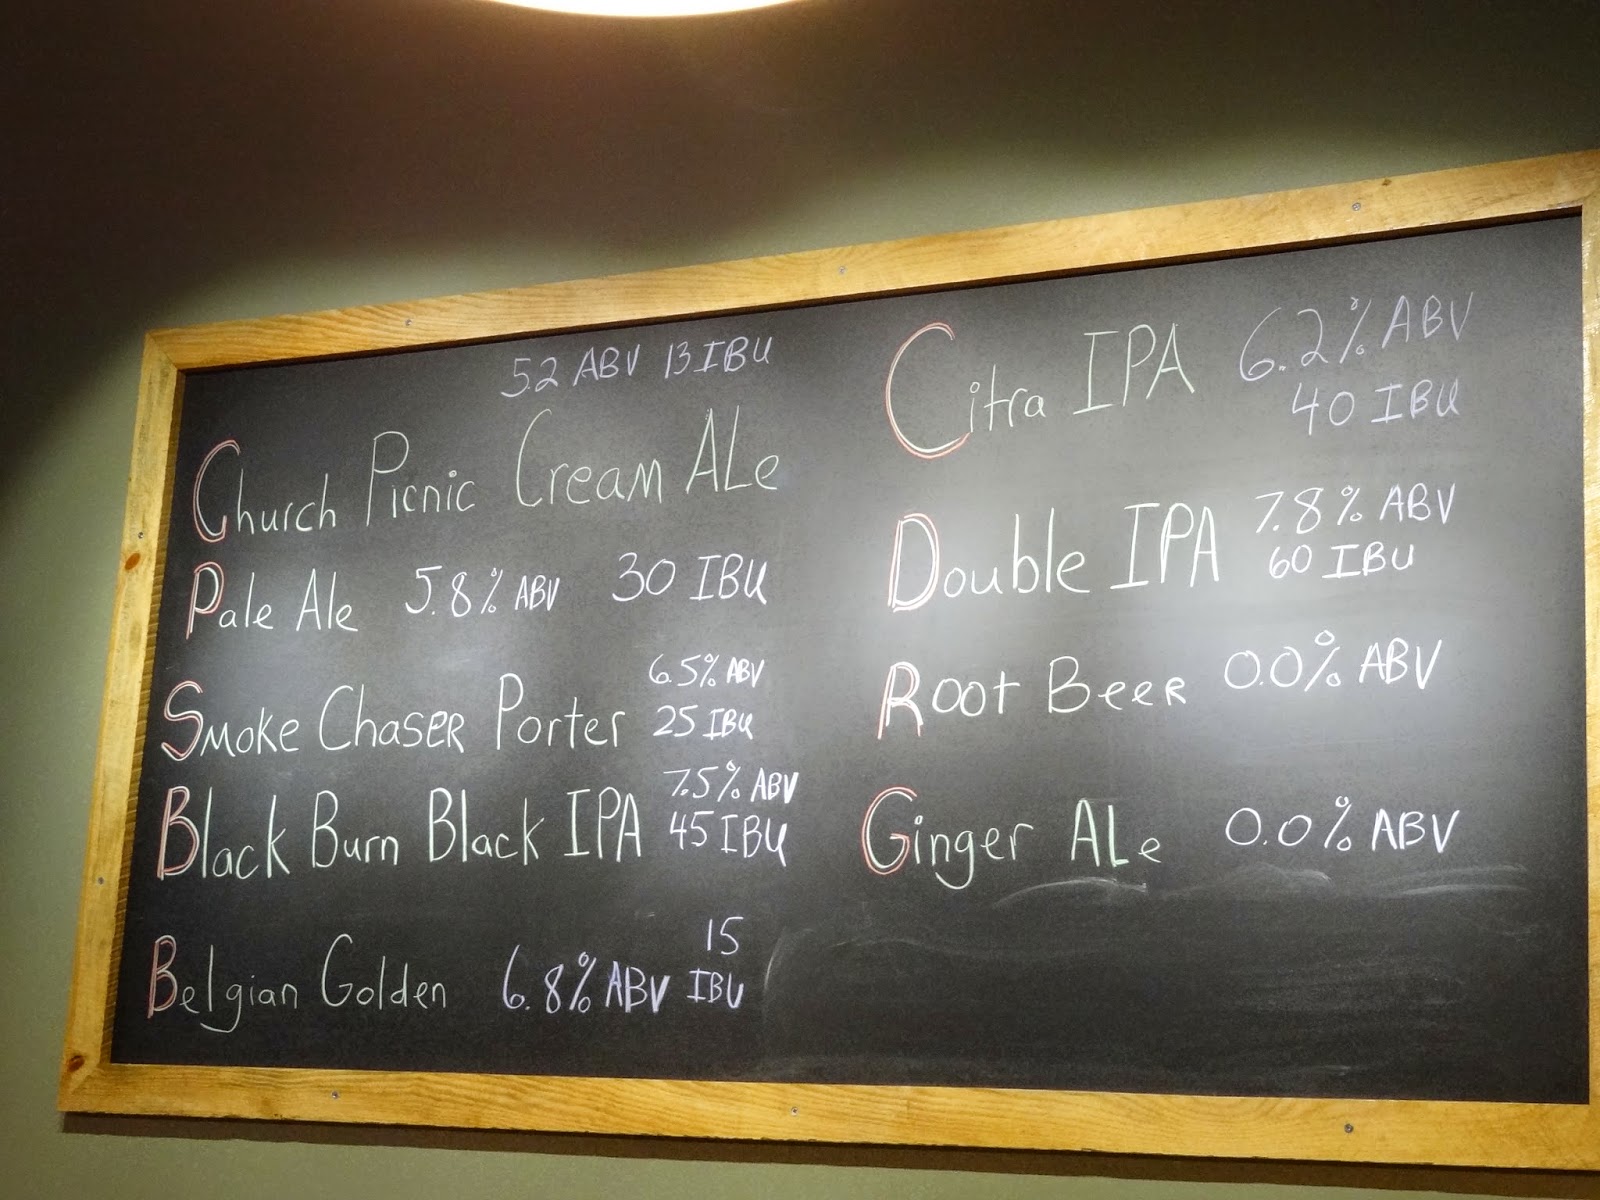 5.2 ABV 13 IBU
Church Picnic Cream ALe
Pale Ale 5.8% ABV 30 IBU
6.5% ABV
Smoke Chaser Porter 25 IBU
7.5% ABV
Black Burn Black IPA 45 IBU
15
Belgian Golden 6.8% ABV IBU
Citra IPA 6.2% ABV
40 IBU
Double IPA 7.8% ABV
60 IBU
Root Beer 0.0% ABV
Ginger ALe 0.0% ABV